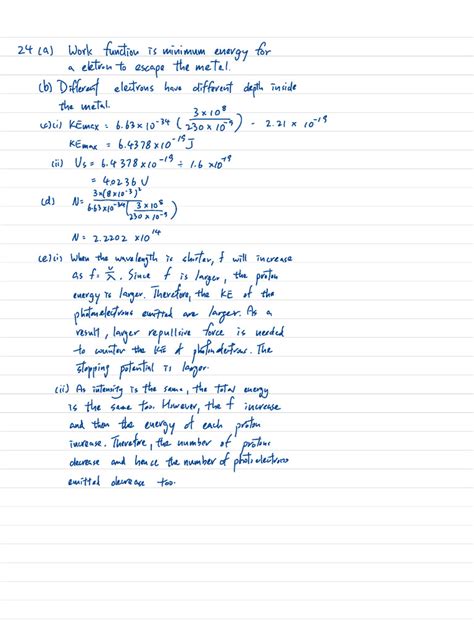 24 (a) Work function is minimum energy for
a eletron to escape the metel.
(b) Different electrons have different depth inside
the metal.
(c)(i) KEmax = 6.63×10⁻³⁴ (3×10⁸ / 230×10⁻⁹) - 2.21 × 10⁻¹⁹
KEmax = 6.4378×10⁻¹⁹ J
(ii) Us = 6.4378×10⁻¹⁹ ÷ 1.6 ×10⁻¹⁹
= 4.0236 V
(d) N = 3×(8×10⁻³)² / 6.63×10⁻³⁴(3×10⁸ / 230×10⁻⁹)
N = 2.2202 ×10¹⁴
(e)(i) When the wavelength is shorter, f will increase
as f = v/λ. Since f is larger, the proton
energy is larger. Therefore, the KE of the
photoelectrons emitted are larger. As a
result, larger repullsive force is needed
to counter the KE of photoelectrons. The
stopping potential is larger.
(ii) As intensity is the same, the total energy
is the same too. However, the f increase
and then the energy of each proton
increase. Therefore, the number of protons
decrease and hence the number of photoelectrons
emitted decrease too.